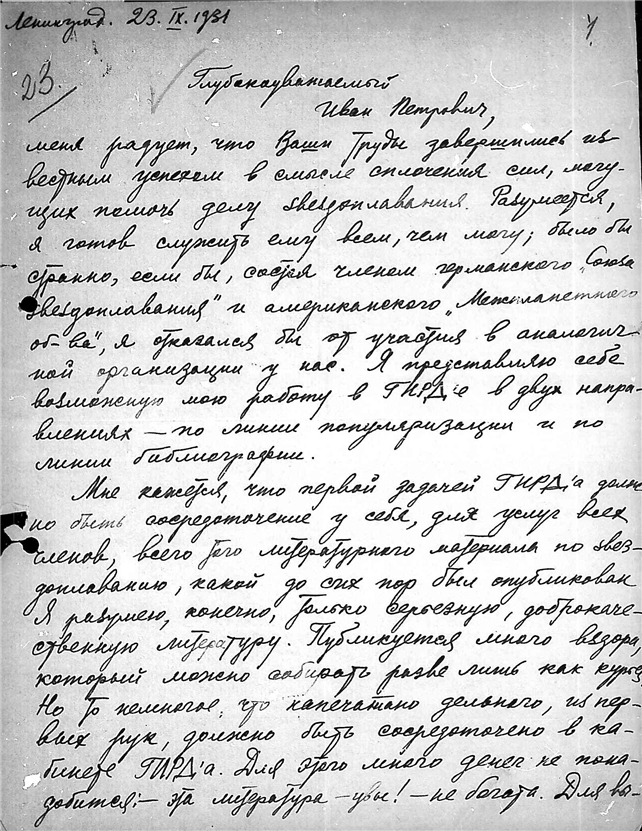 Ленинград. 23. IX. 1931
1
23.
Глубокоуважаемый
Иван Петрович,
меня радует, что Ваши Труды завершились из-
вестным успехом в смысле сплочения сил, могу-
щих помочь делу звездоплавания. Разумеется,
я готов служить ему всем, чем могу; было бы
странно, если бы, состоя членом германского „Союза
звездоплавания" и американского „Межпланетного
об-ва", я отказался бы от участия в аналогич-
ной организации у нас. Я представляю себе
возможную мою работу в ГИРД'е в двух напра-
влениях — по линии популяризации и по
линии библиографии.
Мне кажется, что первой задачей ГИРД'а долж-
но быть сосредоточение у себя, для услуг всех
членов, всего того литературного материала по звез-
доплаванию, какой до сих пор был опубликован
Я разумею, конечно, только серьезную, доброкаче-
ственную литературу. Публикуется много вздора,
который можно собирать разве лишь как курьез
Но то немногое, что напечатано дельного, из пер-
вых рук, должно быть сосредоточено в ка-
бинете ГИРД'а. Для этого много денег не пона-
добится: — эта литература — увы! — не богата. Для вы-